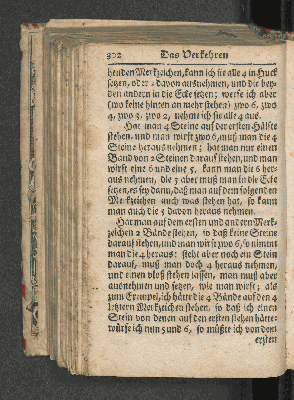 302 Das Verkehren
henden Merkzeichen, kann ich sie alle 4 in Huck
setzen, oder 2 davon ausnehmen, und die bey-
den andern in die Ecke setzen; werfe ich aber
(wo keine hinten an mehr stehen) zwo 6, zwo
4, zwo 3, zwo 2, nehme ich sie alle 4 aus.
Hat man 4 Steine auf der ersten Hälfte
stehen, und man wirft zwo 6, muß man die 4
Steine heraus nehmen; hat man nur einen
Band von 2 Steinen darauf stehen, und man
wirft eine 6 und eine 5, kann man die 6 her-
aus nehmen, die 5 aber muß man in die Ecke
setzen, es sey dann, daß man auf dem folgenden
Merkzeichen auch was stehen hat, so kann
man auch die 5 davon heraus nehmen.
Hat man auf dem ersten und andern Merk-
zeichen 2 Bände stehen, so daß keine Steine
darauf stehen, und man wirft zwo 6, so nimmt
man die 4 heraus: steht aber noch ein Stein
darauf, muß man doch 4 heraus nehmen,
und einen bloß stehen lassen, man muß aber
ausnehmen und setzen, wie man wirft; als
zum Exempel, ich hätte die 4 Bände auf den 4
letztern Merkzeichen stehen, so daß ich einen
Stein von denen auf den ersten stehen hätte-
würfe ich nun 5 und 6, so müßte ich von dem
ersten